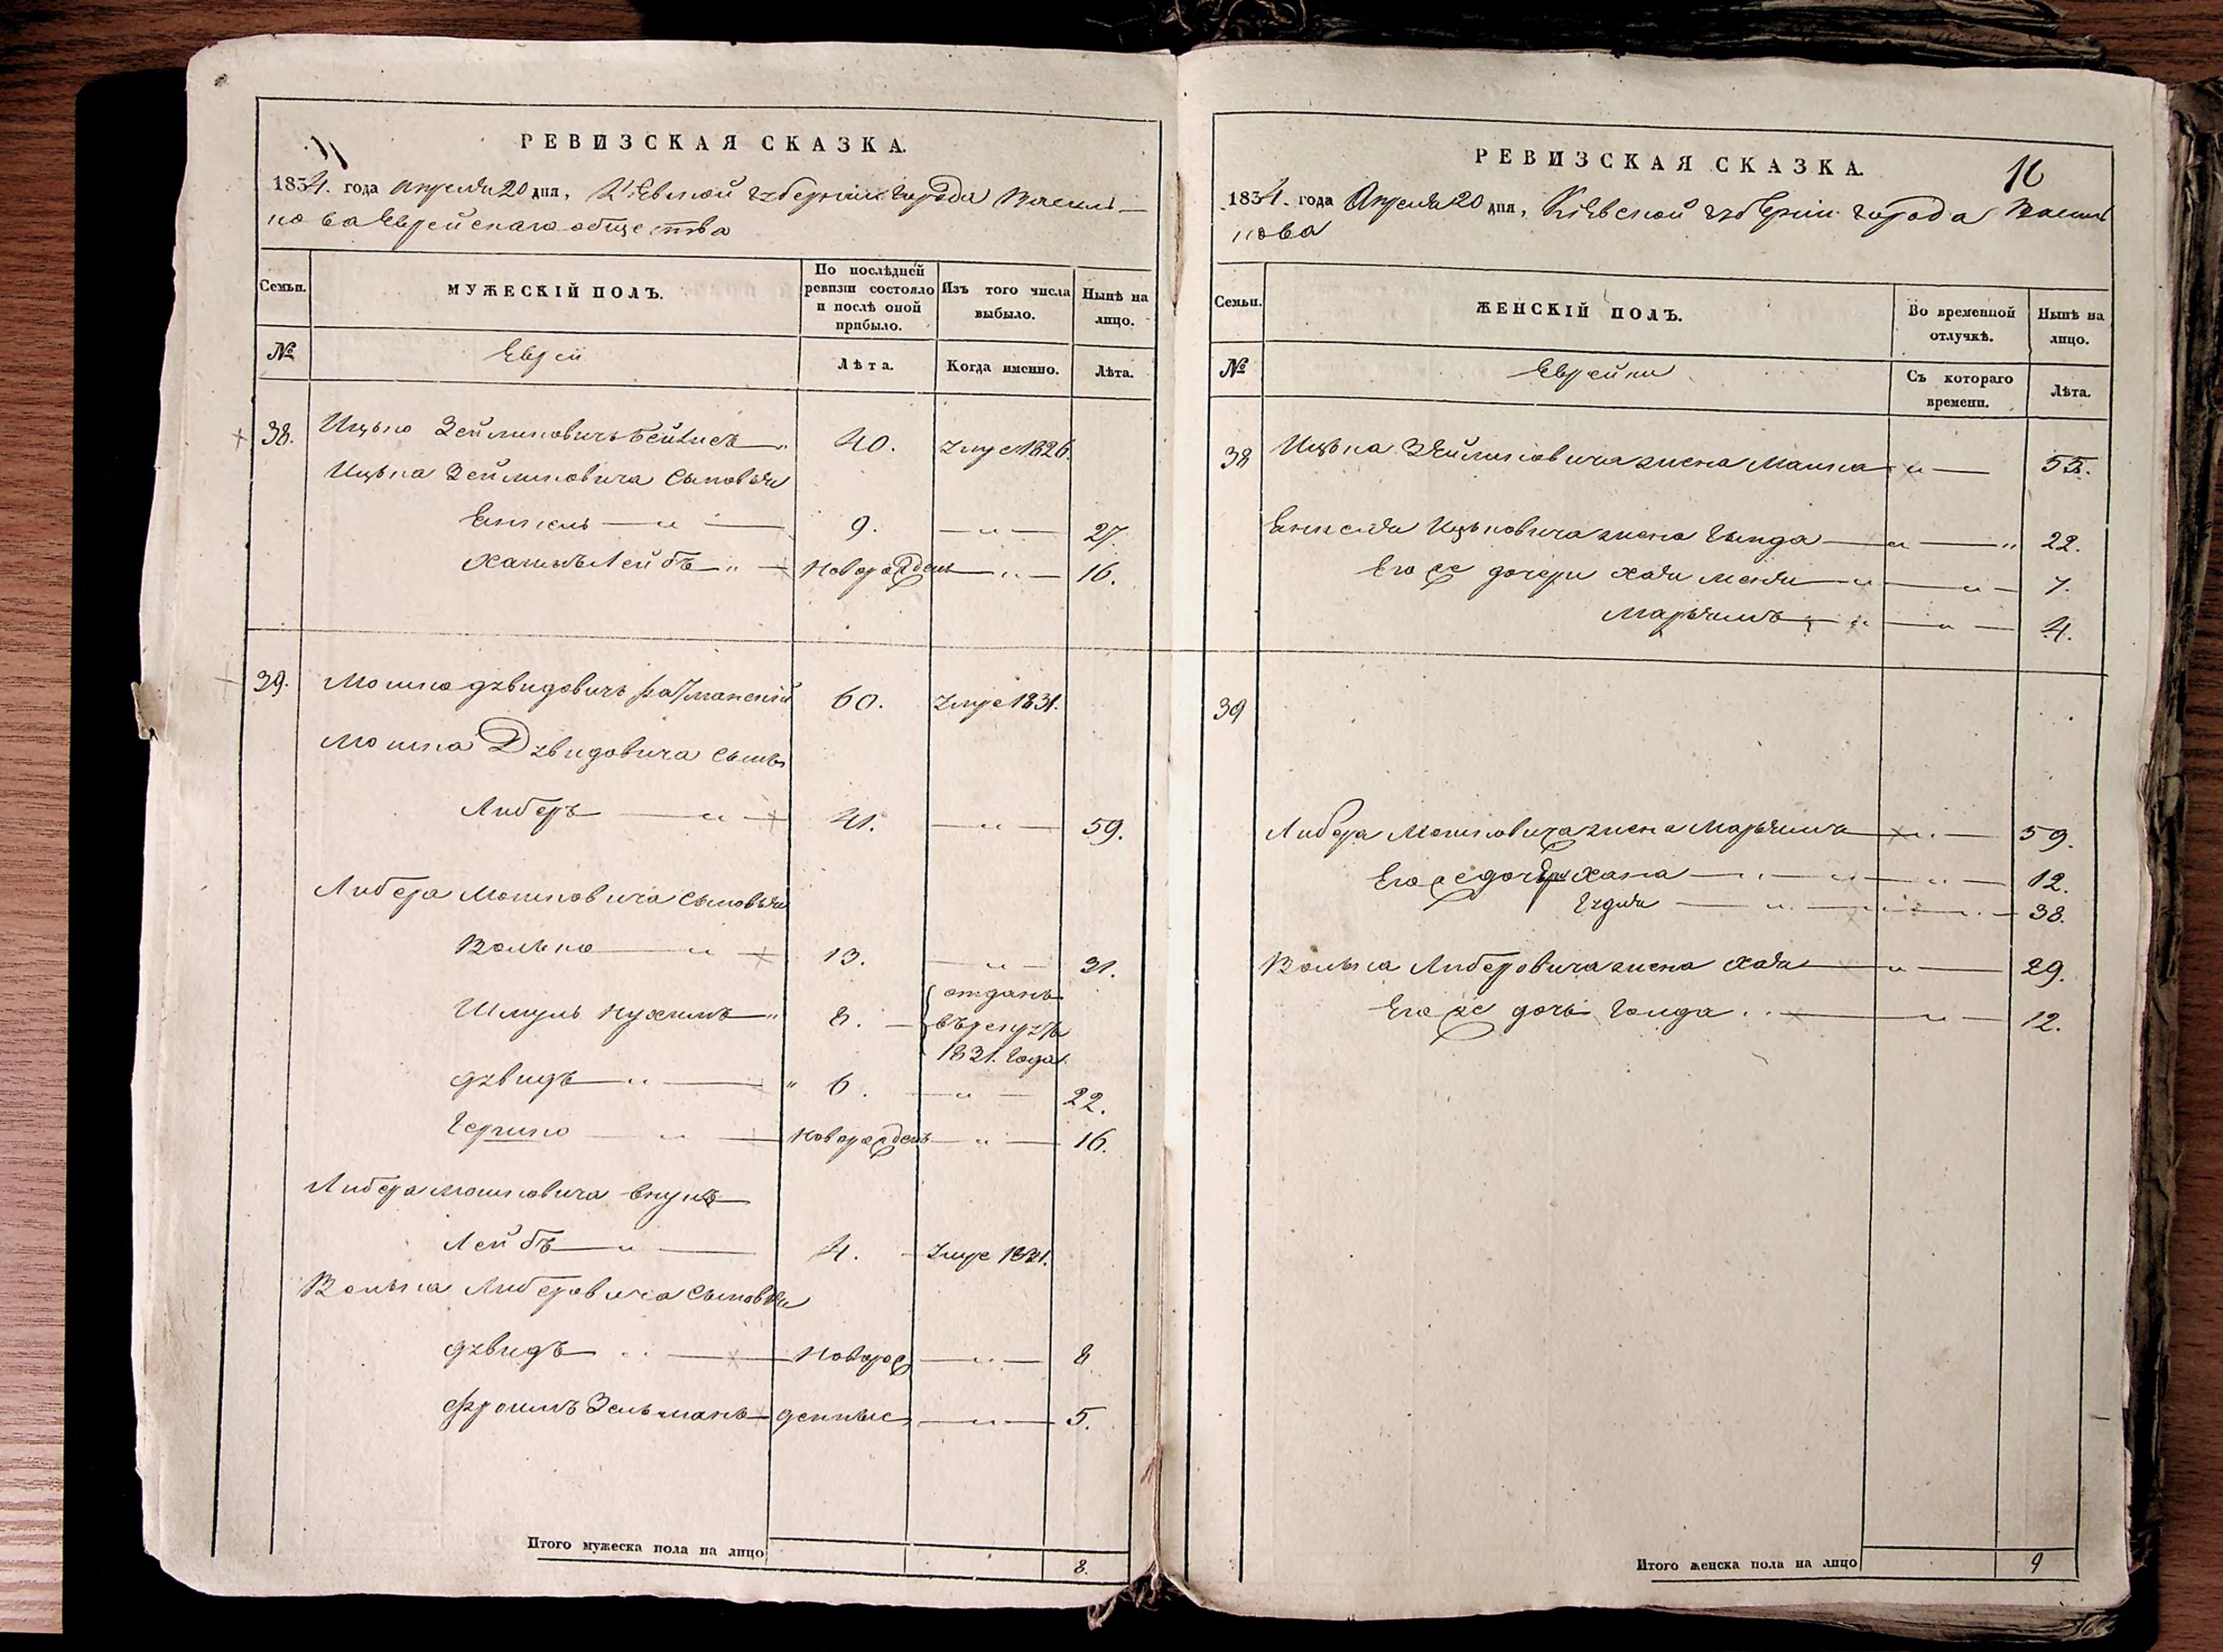 РЕВИЗСКАЯ СКАЗКА.
1834. года Апреля 20 дня, Кіевской губерніи города Василь-
кова Еврейскаго общества
Семьи.
МУЖЕСКІЙ ПОЛЪ.
По послѣдней ревизіи состояло и послѣ оной прибыло.
Изъ того числа выбыло.
Нынѣ на лицо.
№
Евреи
Лѣта.
Когда именно.
Лѣта.
38. Ицько Зейликовичъ 40. умре 1826.
Ицька Зейликовича сыновья
Енкель 9. 27.
Хаимъ Лейбъ новорожденъ 16.
39. Мошко Дувидовичъ 60. умре 1831.
Мошка Дувидовича сынъ
Либеръ 41. 59.
Либера Мошковича сыновья
Волько 13. 31.
Шмуль Нухимъ 8. отданъ
въ рекруты
1831. года
Дувидъ 6. 22.
Гершко новорожденъ 16.
Либера Мошковича внукъ
Лейбъ 4. умре 1821.
Волька Либеровича сыновья
Дувидъ новорож 8
Фроимъ Зельманъ денные 5.
Итого мужеска пола на лицо 8.
РЕВИЗСКАЯ СКАЗКА.
16
1834. года Апреля 20 дня, Кіевской губерніи города Василь
кова
Семьи.
ЖЕНСКІЙ ПОЛЪ.
Во временной отлучкѣ.
Нынѣ на лицо.
№
Еврейки
Съ котораго времени.
Лѣта.
38 Ицька Зейликовича жена Малка 55.
Енкеля Ицьковича жена Гинда 22.
Его же дочери Хая 7.
Марьямъ 4.
39
Либера Мошковича жена Марьямъ 59.
Его же дочери Хана 12.
38.
Волька Либеровича жена Хая 29.
Его же дочь Голда 12.
Итого женска пола на лицо 9